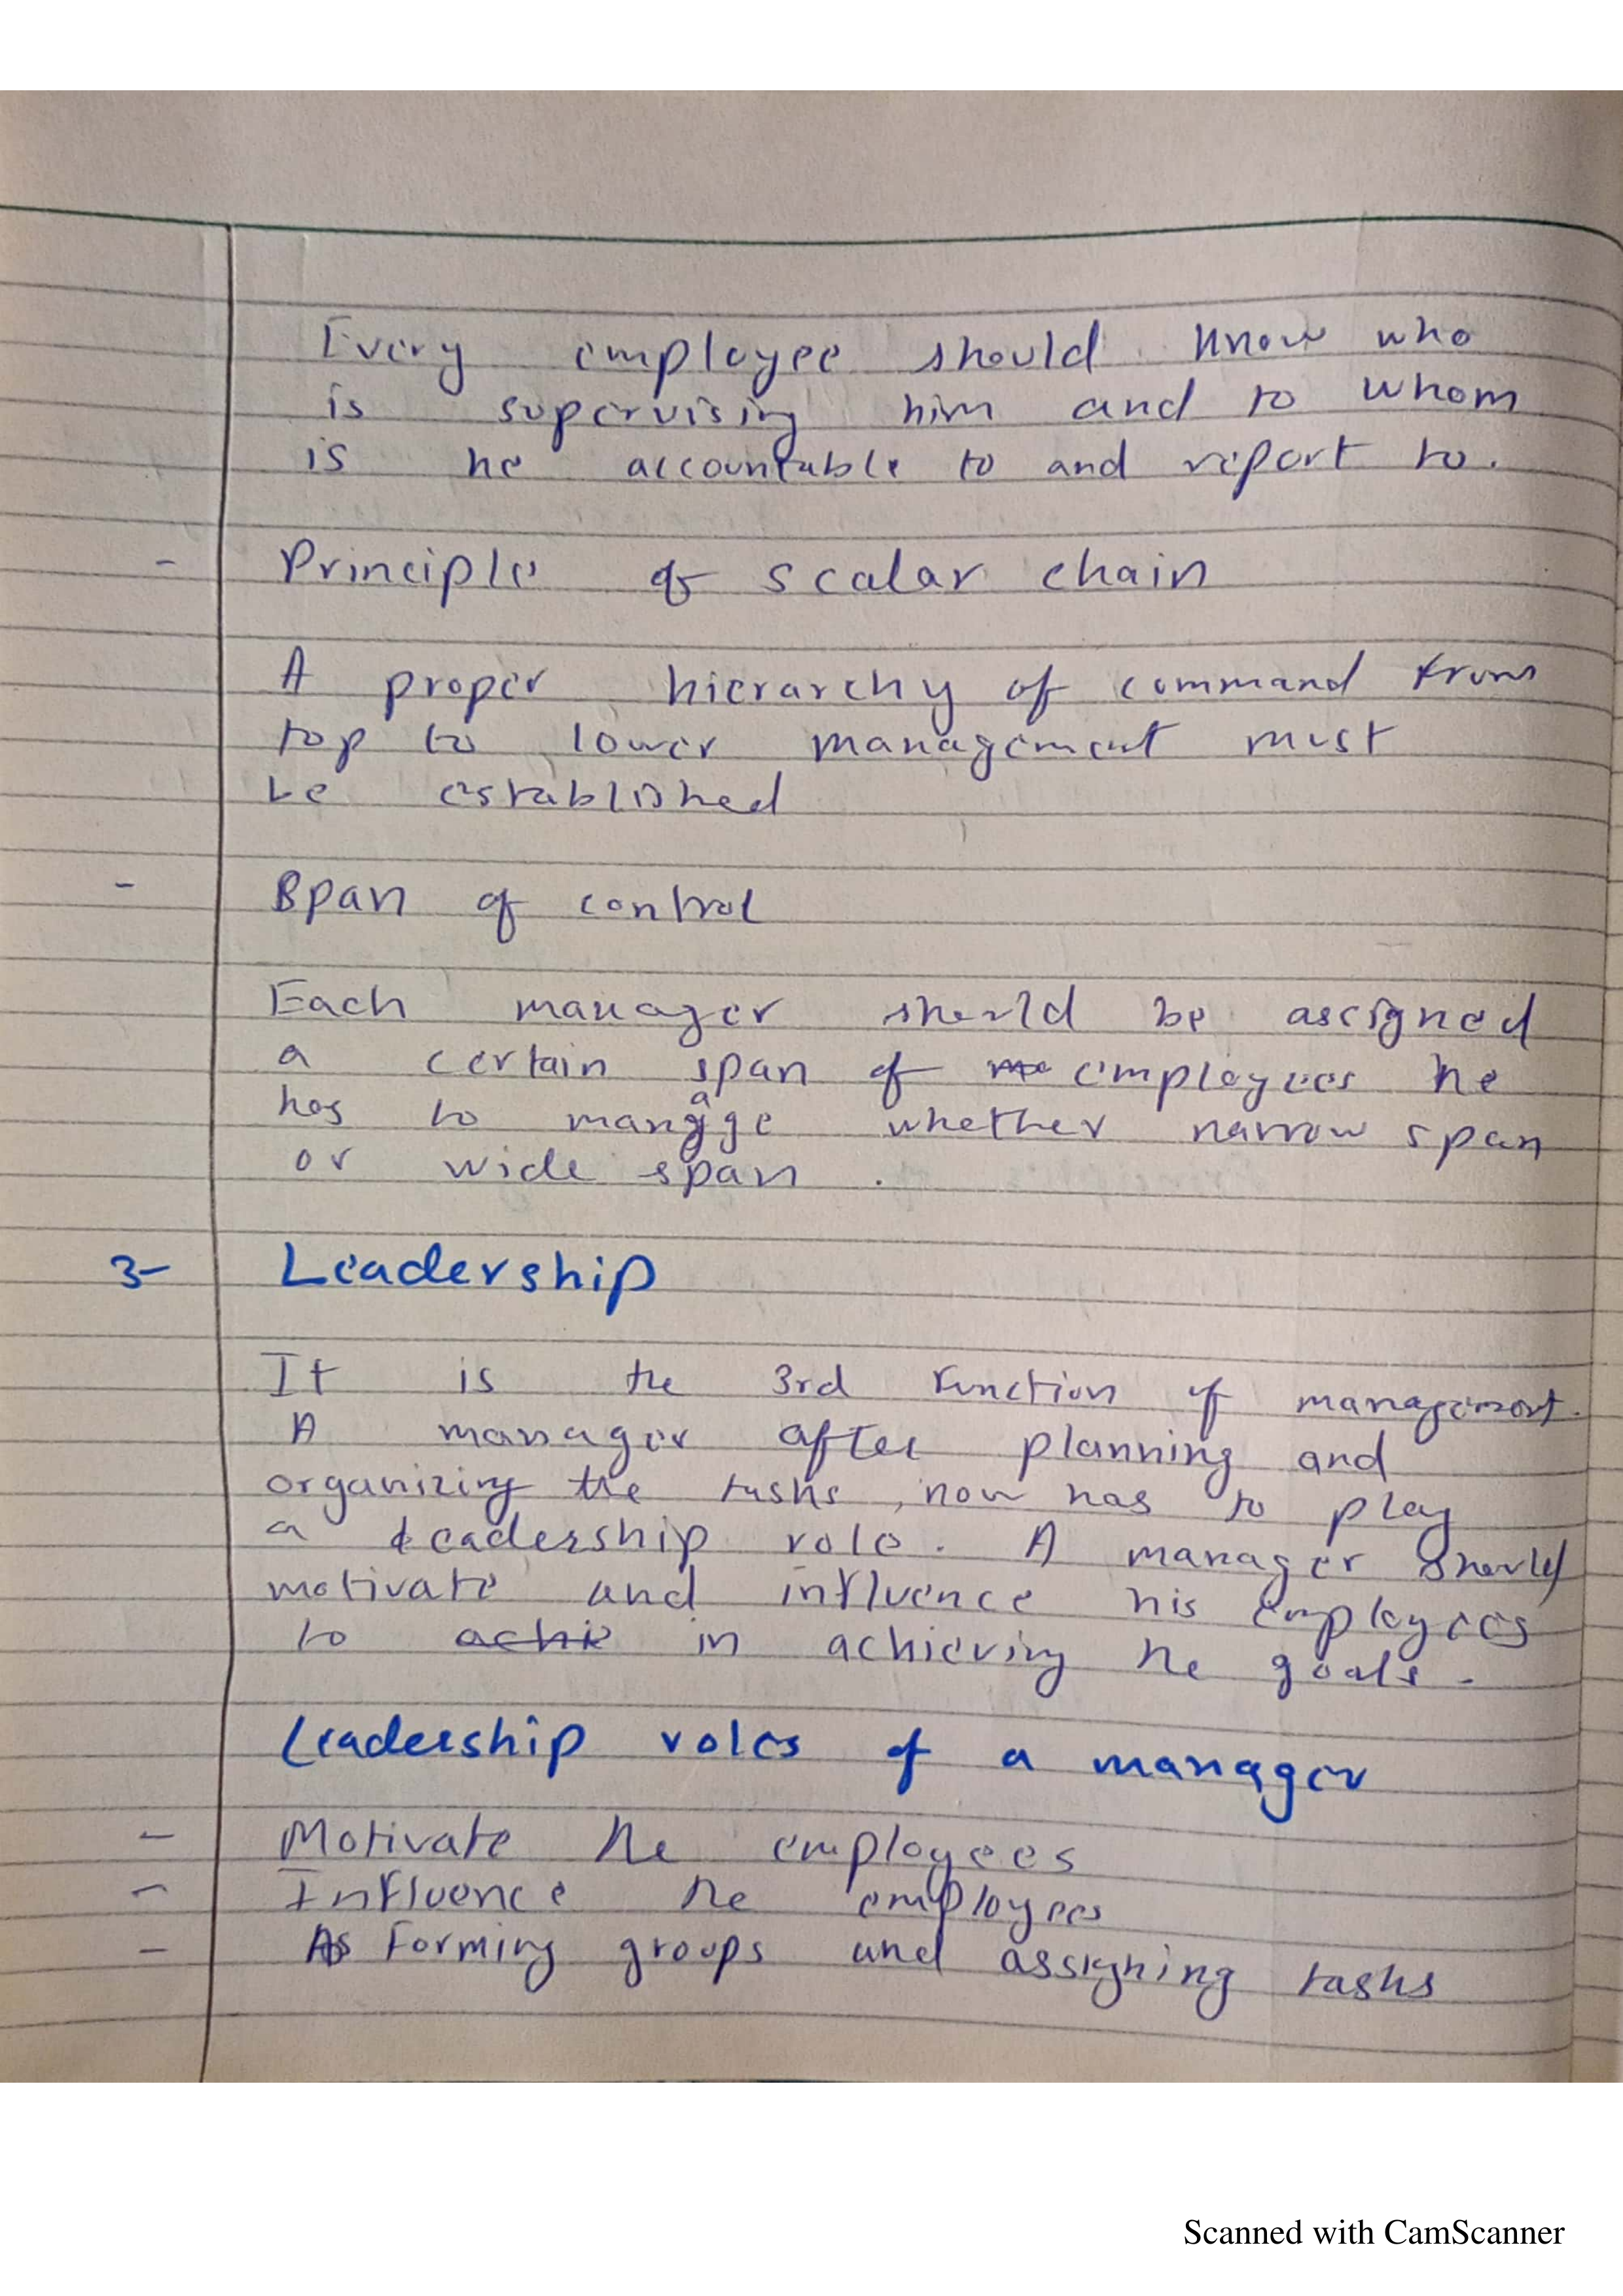 Every employee should know who
is supervising him and to whom
is he accountable to and report to.
- Principle of scalar chain
A proper hierarchy of command from
top to lower management must
be established
- Span of control
Each manager should be assigned
a certain span of employees he
has to manage whether narrow span
or wide span.
3- Leadership
It is the 3rd function of management.
A manager after planning and
organizing the tasks, now has to play
a leadership role. A manager should
motivate and influence his employees
to achie in achieving the goals.
Leadership roles of a manager
- Motivate the employees
- Influence the employees
- As Forming groups and assigning tasks
Scanned with CamScanner